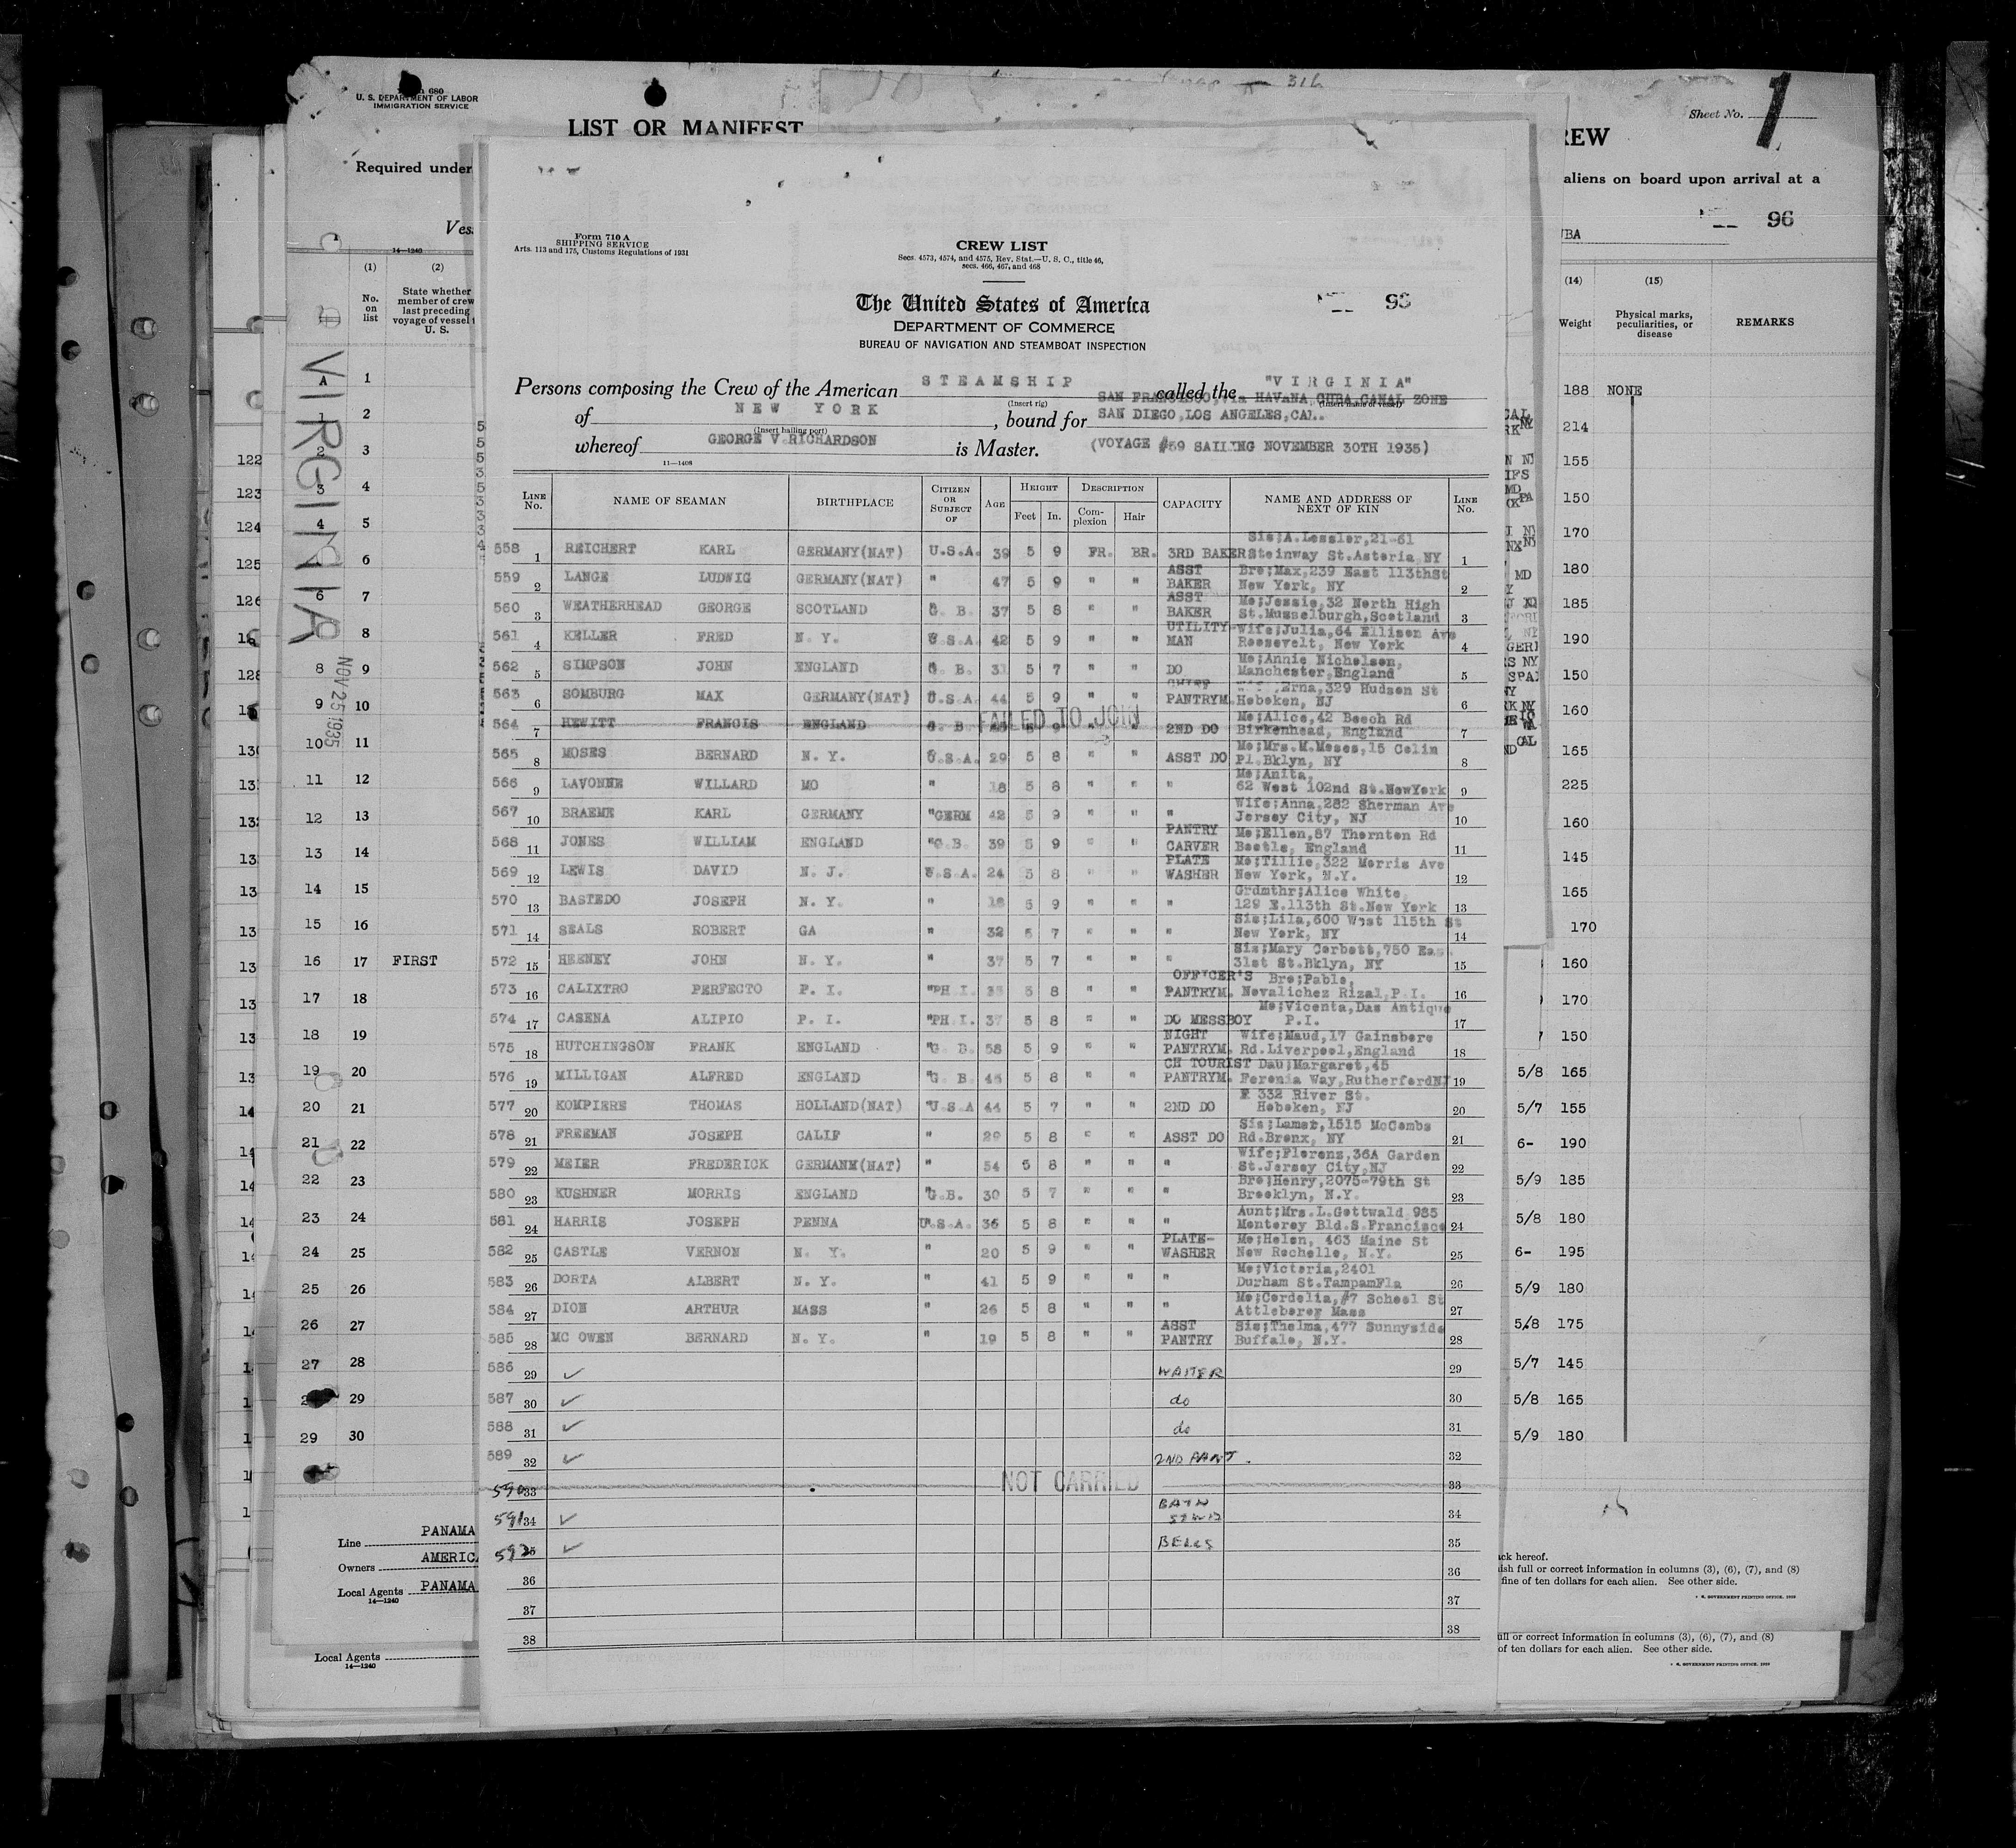 316
Form 680
U. S. DEPARTMENT OF LABOR
IMMIGRATION SERVICE
LIST OR MANIFEST
Required under
Sheet No. 1
REW
aliens on board upon arrival at a
96
UBA
14—1240
(1) (2)
No. on list
State whether member of crew last preceding voyage of vessel U. S.
(14) (15)
Weight
Physical marks, peculiarities, or disease
REMARKS
VIRGINIA
NOV 25 1935
Form 710 A
SHIPPING SERVICE
Arts. 113 and 175, Customs Regulations of 1931
CREW LIST
Secs. 4573, 4574, and 4575, Rev. Stat.—U. S. C., title 46,
secs. 466, 467, and 468
The United States of America
DEPARTMENT OF COMMERCE
BUREAU OF NAVIGATION AND STEAMBOAT INSPECTION
Persons composing the Crew of the American STEAMSHIP called the "VIRGINIA"
(Insert rig) (Insert name of vessel)
SAN FRANCISCO, via HAVANA, CUBA CANAL ZONE
of NEW YORK, bound for SAN DIEGO, LOS ANGELES, CAL.
(Insert hailing port)
whereof GEORGE V RICHARDSON is Master. (VOYAGE #59 SAILING NOVEMBER 30TH 1935)
11—1408
LINE No. NAME OF SEAMAN BIRTHPLACE CITIZEN OR SUBJECT OF AGE HEIGHT Feet In. DESCRIPTION Complexion Hair CAPACITY NAME AND ADDRESS OF NEXT OF KIN LINE No.
558 1 REICHERT KARL GERMANY(NAT) U.S.A. 39 5 9 FR. BR. 3RD BAKER Sis;A.Lessler,21-61 Steinway St.Astoria NY 1
559 2 LANGE LUDWIG GERMANY(NAT) " 47 5 9 " " ASST BAKER Bro;Max,239 East 113thSt New York, NY 2
560 3 WEATHERHEAD GEORGE SCOTLAND G. B. 37 5 8 " " ASST BAKER Mo;Jessie,32 North High St.Musselburgh,Scotland 3
561 4 KELLER FRED N. Y. U.S.A. 42 5 9 " " UTILITY-MAN Wife;Julia,64 Ellison Ave Roosevelt, New York 4
562 5 SIMPSON JOHN ENGLAND G. B. 31 5 7 " " DO Mo;Annie Nicholson, Manchester,England 5
563 6 SOMBURG MAX GERMANY(NAT) U.S.A. 44 5 9 " " CHIEF PANTRYM. Erna,329 Hudson St Hoboken, NJ 6
564 7 HEWITT FRANCIS ENGLAND G. B. 5 9 2ND DO Mo;Alice,42 Beech Rd Birkenhead, England 7
FAILED TO JOIN
565 8 MOSES BERNARD N. Y. U.S.A. 29 5 8 " " ASST DO Mo;Mrs.M.Moses,15 Colin Pl.Bklyn, NY 8
566 9 LAVONNE WILLARD MO " 18 5 8 " " " Mo;Anita, 62 West 102nd St.NewYork 9
567 10 BRAEME KARL GERMANY "GERM 42 5 9 " " " Wife;Anna,282 Sherman Ave Jersey City, NJ 10
568 11 JONES WILLIAM ENGLAND "G.B. 39 5 9 " " PANTRY CARVER Mo;Ellen,87 Thornton Rd Bootle, England 11
569 12 LEWIS DAVID N. J. U.S.A. 24 5 8 " " PLATE WASHER Mo;Tillie,322 Morris Ave New York, N.Y. 12
570 13 BASTEDO JOSEPH N. Y. " 18 5 9 " " " Grdmthr;Alice White, 129 E.113th St.New York 13
571 14 SEALS ROBERT GA " 32 5 7 " " " Sis;Lila,600 West 115th St New York, NY 14
572 15 HEENEY JOHN N. Y. " 37 5 7 " " " Sis;Mary Corbett,750 Eas 31st St.Bklyn, NY 15
573 16 CALIXTRO PERFECTO P. I. "PH.I. 5 8 " " OFFICER'S PANTRYM. Bro;Pablo, Novalichez Rizal,P.I. 16
574 17 CASENA ALIPIO P. I. "PH.I. 37 5 8 " " DO MESSBOY Mo;Vicenta,Das Antique P.I. 17
575 18 HUTCHINGSON FRANK ENGLAND "G. B. 58 5 9 " " NIGHT PANTRYM. Wife;Maud,17 Gainsboro Rd.Liverpool,England 18
576 19 MILLIGAN ALFRED ENGLAND "G. B. 45 5 8 " " CH TOURIST PANTRYM. Dau;Margaret,45 Feronia Way,RutherfordNJ 19
577 20 KOMPIERE THOMAS HOLLAND(NAT) "U.S.A 44 5 7 " " 2ND DO F 332 River St. Hoboken, NJ 20
578 21 FREEMAN JOSEPH CALIF " 29 5 8 " " ASST DO Sis;Lamar,1515 McCombs Rd.Bronx, NY 21
579 22 MEIER FREDERICK GERMANY(NAT) " 54 5 8 " " " Wife;Florens,36A Garden St.Jersey City,NJ 22
580 23 KUSHNER MORRIS ENGLAND "G.B. 30 5 7 " " " Bro;Henry,2075-79th St Brooklyn, N.Y. 23
581 24 HARRIS JOSEPH PENNA U.S.A. 36 5 8 " " " Aunt;Mrs.L.Gottwald 985 Monterey Bld.S.Francisco 24
582 25 CASTLE VERNON N. Y. " 20 5 9 " " PLATE-WASHER Mo;Helen, 463 Maine St New Rochelle, N.Y. 25
583 26 DORTA ALBERT N. Y. " 41 5 9 " " " Mo;Victoria,2401 Durham St.TampamFla 26
584 27 DION ARTHUR MASS " 26 5 8 " " " Mo;Cordelia,#7 School St Attleboro Mass 27
585 28 MC OWEN BERNARD N. Y. " 19 5 8 " " ASST PANTRY Sis;Thelma,477 Sunnyside Buffalo, N.Y. 28
586 29 ✓ WAITER 29
587 30 ✓ do 30
588 31 ✓ do 31
589 32 ✓ 2ND PANT. 32
590 33 NOT CARRIED 33
591 34 ✓ BATH 34
592 35 ✓ BELLS 35
36 36
37 37
38 38
188 NONE
214
155
150
170
180
185
190
150
160
165
225
160
145
165
170
160
170
150
5/8 165
5/7 155
6- 190
5/9 185
5/8 180
6- 195
5/9 180
5/8 175
5/7 145
5/8 165
5/9 180
17 FIRST
Line PANAMA
Owners AMERICA
Local Agents PANAMA
14—1240
Local Agents
14—1240
ack hereof.
ish full or correct information in columns (3), (6), (7), and (8)
fine of ten dollars for each alien. See other side.
U. S. GOVERNMENT PRINTING OFFICE
full or correct information in columns (3), (6), (7), and (8)
of ten dollars for each alien. See other side.
U. S. GOVERNMENT PRINTING OFFICE